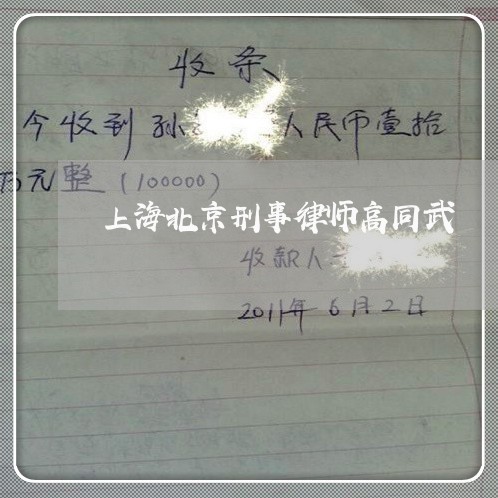 收条
今收到孙 人民币壹拾
万元整(100000)
上海北京刑事律师高同武
收款人
2011年6月2日